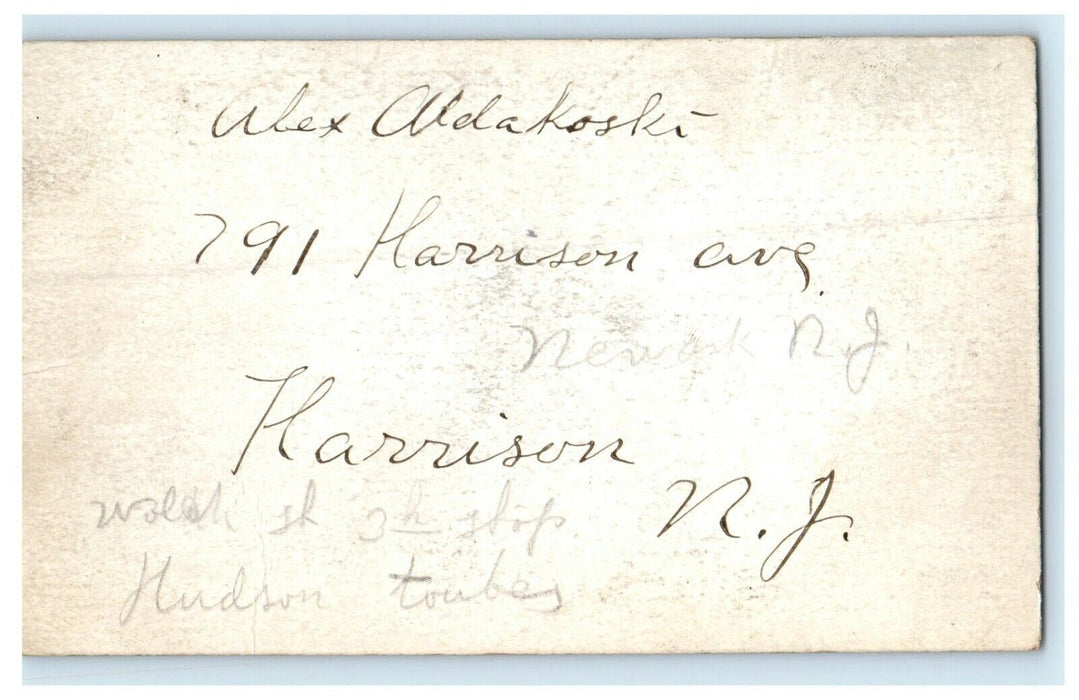 Alex Aldakoski
791 Harrison ave.
Newark N.J.
Harrison
N. J.
st 3h stop
Hudson toubes